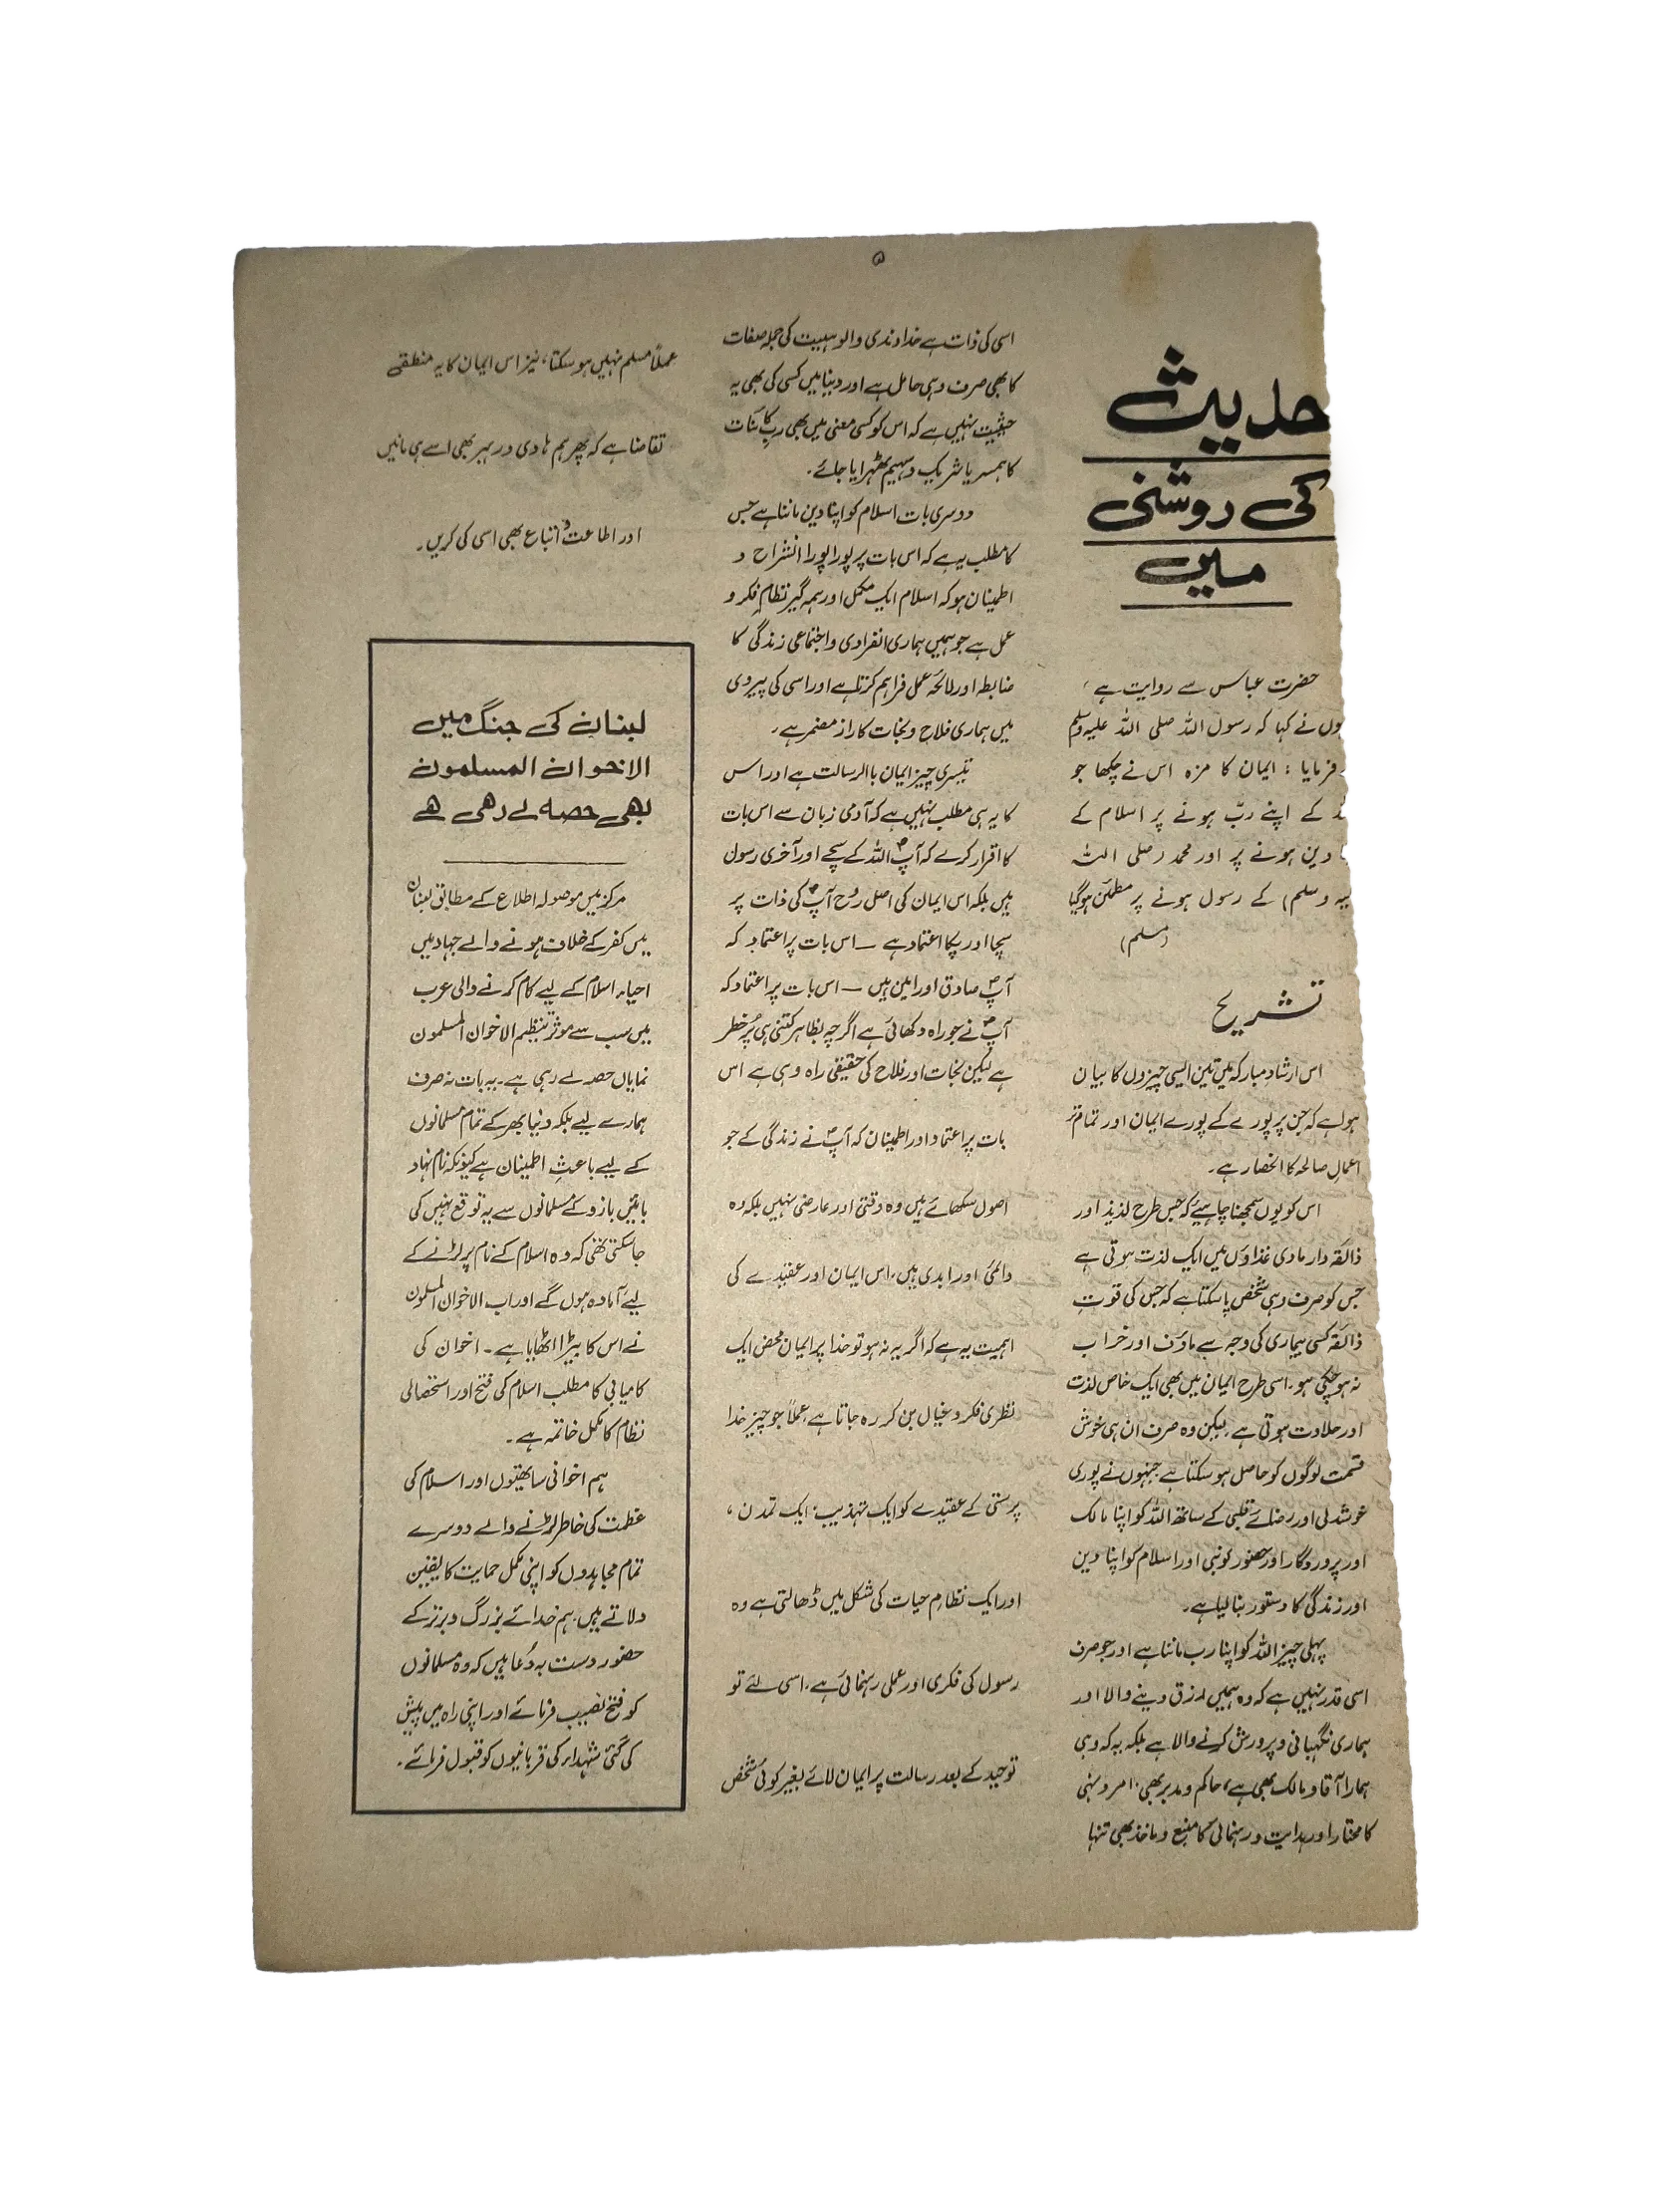 ۵
حدیث
کی روشنی
میں
حضرت عباس سے روایت ہے،
وں نے کہا کہ رسول اللہ صلی اللہ علیہ وسلم
فرمایا : ایمان کا مزہ اس نے چکھا جو
کے اپنے ربّ ہونے پر اسلام کے
دین ہونے پر اور محمد (صلی اللہ
یہ وسلم) کے رسول ہونے پر مطمئن ہوگیا
(مسلم)
تشریح
اس ارشاد مبارکہ میں تین ایسی چیزوں کا بیان
ہوا ہے کہ جن پر پورے کے پورے ایمان اور تمام تر
اعمالِ صالحہ کا انحصار ہے۔
اس کو یوں سمجھنا چاہیئے کہ جس طرح لذیذ اور
ذائقہ دار مادی غذاؤں میں ایک لذت ہوتی ہے
جس کو صرف وہی شخص پا سکتا ہے کہ جس کی قوتِ
ذائقہ کسی بیماری کی وجہ سے ماؤف اور خراب
نہ ہو چکی ہو۔ اسی طرح ایمان میں بھی ایک خاص لذت
اور حلاوت ہوتی ہے۔ لیکن وہ صرف ان ہی خوش
قسمت لوگوں کو حاصل ہو سکتا ہے جنہوں نے پوری
خوشدلی اور رضائے قلبی کے ساتھ اللہ کو اپنا مالک
اور پروردگار اور حضورؐ کو نبی اور اسلام کو اپنا دین
اور زندگی کا دستور بنا لیا ہے۔
پہلی چیز اللہ کو اپنا رب ماننا ہے اور جو صرف
اسی قدر نہیں ہے کہ وہ ہمیں رزق دینے والا اور
ہماری نگہبانی و پرورش کرنے والا ہے بلکہ یہ کہ وہی
ہمارا آقا و مالک بھی ہے، حاکم و مدبر بھی، امر و نہی
کا مختار اور ہدایت و رہنمائی کا منبع و ماخذ بھی تنہا
اسی کی ذات ہے خداوندی و الوہیت کی جملہ صفات
کا بھی صرف وہی حامل ہے اور دنیا میں کسی کی بھی یہ
حیثیت نہیں ہے کہ اس کو کسی معنی میں بھی ربِ کائنات
کا ہمسر یا شریک و سہیم ٹھہرایا جائے۔
دوسری بات اسلام کو اپنا دین ماننا ہے جس
کا مطلب یہ ہے کہ اس بات پر پورا پورا انشراح و
اطمینان ہو کہ اسلام ایک مکمل اور ہمہ گیر نظامِ فکر و
عمل ہے جو ہمیں ہماری انفرادی و اجتماعی زندگی کا
ضابطہ اور لائحہ عمل فراہم کرتا ہے اور اسی کی پیروی
میں ہماری فلاح و نجات کا راز مضمر ہے۔
تیسری چیز ایمان باالرسالت ہے اور اس
کا یہ ہی مطلب نہیں ہے کہ آدمی زبان سے اس بات
کا اقرار کرے کہ آپؐ اللہ کے سچے اور آخری رسول
ہیں بلکہ اس ایمان کی اصل روح آپؐ کی ذات پر
سچا اور پکا اعتماد ہے — اس بات پر اعتماد کہ
آپؐ صادق اور امین ہیں — اس بات پر اعتماد کہ
آپؐ نے جو راہ دکھائی ہے اگرچہ بظاہر کتنی ہی پُرخطر
ہے لیکن نجات اور فلاح کی حقیقی راہ وہی ہے اس
بات پر اعتماد اور اطمینان کہ آپؐ نے زندگی کے جو
اصول سکھائے ہیں وہ وقتی اور عارضی نہیں بلکہ وہ
دائمی اور ابدی ہیں۔ اس ایمان اور عقیدے کی
اہمیت یہ ہے کہ اگر یہ نہ ہو تو خدا پر ایمان محض ایک
نظری فکر و خیال بن کر رہ جاتا ہے۔ عملاً جو چیز خدا
پرستی کے عقیدے کو ایک تہذیب، ایک تمدن،
اور ایک نظامِ حیات کی شکل میں ڈھالتی ہے وہ
رسول کی فکری اور عملی رہنمائی ہے۔ اسی لئے تو
توحید کے بعد رسالت پر ایمان لائے بغیر کوئی شخص
عملاً مسلم نہیں ہو سکتا، نیز اس ایمان کا یہ منطقی
تقاضا ہے کہ پھر ہم ہادی و رہبر بھی اسے ہی مانیں
اور اطاعت و اتباع بھی اسی کی کریں۔
لبنان کی جنگ میں
الاخوان المسلمون
بھی حصہ لے رھی ھے
مرکز میں موصولہ اطلاع کے مطابق لبنان
میں کفر کے خلاف ہونے والے جہاد میں
احیاء اسلام کے لیے کام کرنے والی عرب
میں سب سے موثر تنظیم الاخوان المسلمون
نمایاں حصہ لے رہی ہے۔ یہ بات نہ صرف
ہمارے لیے بلکہ دنیا بھر کے تمام مسلمانوں
کے لیے باعثِ اطمینان ہے کیونکہ نام نہاد
بائیں بازو کے مسلمانوں سے یہ توقع نہیں کی
جا سکتی تھی کہ وہ اسلام کے نام پر لڑنے کے
لیے آمادہ ہوں گے اور اب الاخوان المسلمون
نے اس کا بیڑا اٹھایا ہے۔ اخوان کی
کامیابی کا مطلب اسلام کی فتح اور استحصالی
نظام کا مکمل خاتمہ ہے۔
ہم اخوانی ساتھیوں اور اسلام کی
عظمت کی خاطر لڑنے والے دوسرے
تمام مجاہدوں کو اپنی مکمل حمایت کا یقین
دلاتے ہیں۔ ہم خدائے بزرگ و برتر کے
حضور دست بہ دُعا ہیں کہ وہ مسلمانوں
کو فتح نصیب فرمائے اور اپنی راہ میں پیش
کی گئی شہداء کی قربانیوں کو قبول فرمائے۔